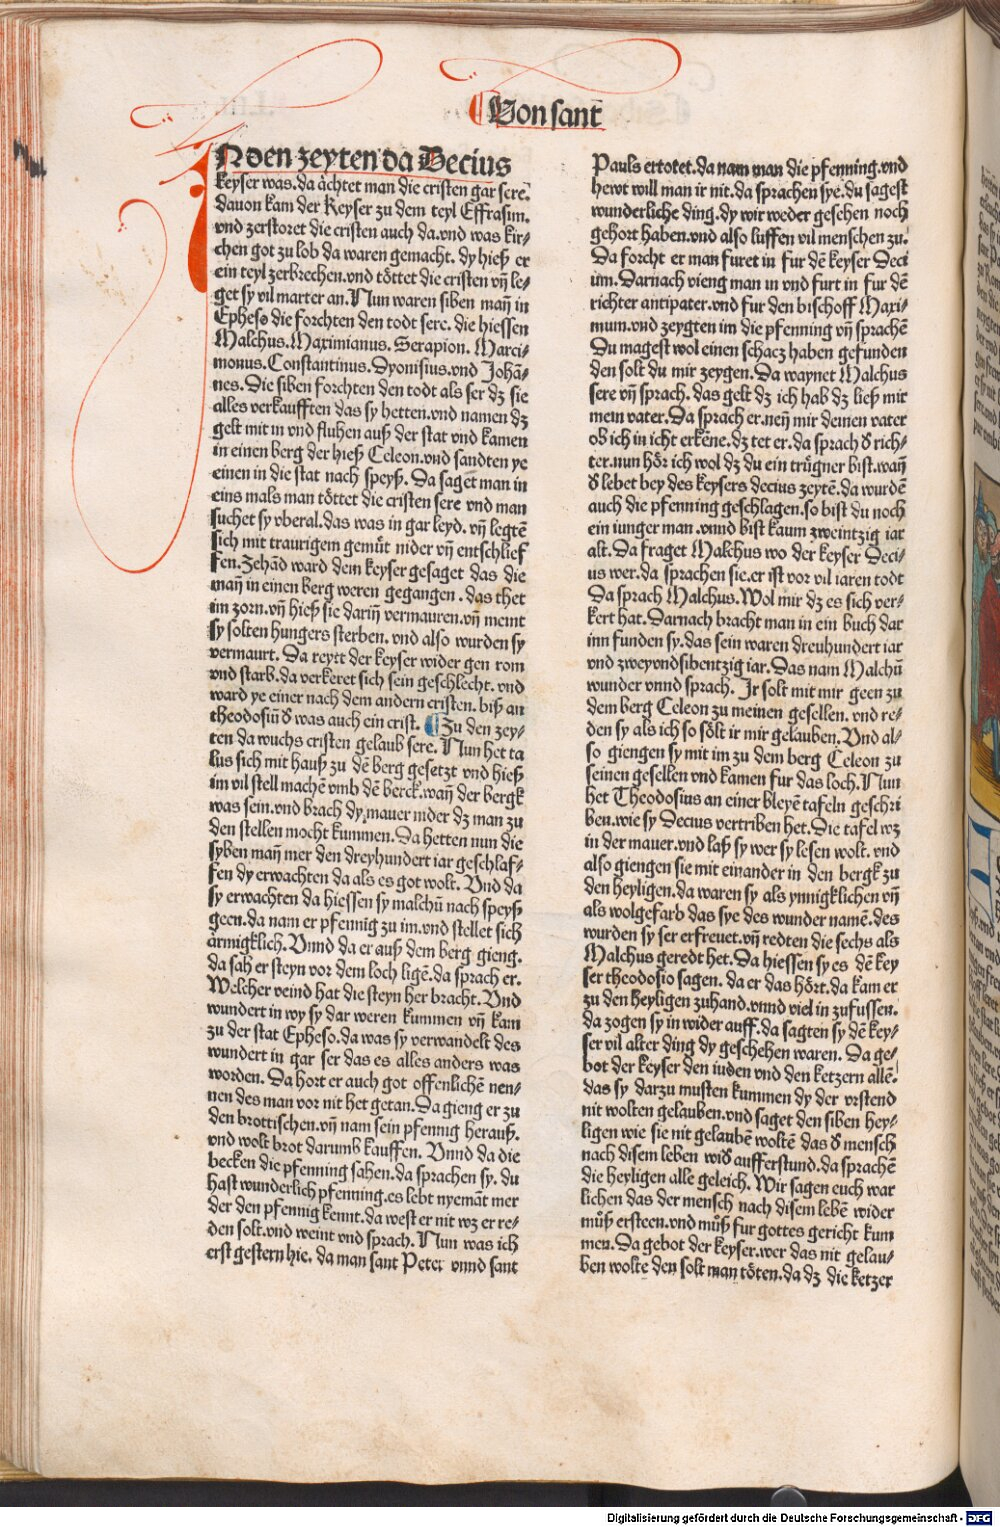 Von sant
IN den zeyten da Decius
keyser was. da åchtet man die cristen gar sere.
dauon kam der Keyser zu dem teyl Effrasim.
vnd zerstoret die cristen auch da. vnd was kir⸗
chen got zu lob da waren gemacht. dy hieß er
ein teyl zerbrechen. vnd tőttet die cristen vñ le⸗
get sy vil marter an. Nun waren siben mañ in
Epheso die forchten den todt sere. die hiessen
Malchus. Maximianus. Serapion. Marci⸗
monus. Constantinus. Dyonisius. vnd Johã⸗
nes. Die siben forchten den todt als ser dz sie
alles verkaufften das sy hetten. vnd namen dz
gelt mit in vnd fluhen auß der stat vnd kamen
in einen berg der hieß Celeon. vnd sandten ye
einen in die stat nach speyß. Da saget man in
eins mals man tőttet die cristen sere vnd man
suchet sy vberal. das was in gar leyd. vñ legtẽ
sich mit traurigem gemüt nider vñ entschlief
fen. Zehãd ward dem keyser gesaget das die
mañ in einen berg weren gegangen. das thet
im zorn. vñ hieß sie dariñ vermauren. vñ meint
sy solten hungers sterben. vnd also wurden sy
vermaurt. Da reytt der keyser wider gen rom
vnd starb. da verkeret sich sein geschlecht. vnd
ward ye einer nach dem andern cristen. biß an
theodosiũ ð was auch ein crist. ¶ Zu den zey⸗
ten da wuchs cristen gelaub sere. Nun het ta
lus sich mit hauß zu dẽ berg gesetzt vnd hieß
im vil stell machẽ vmb dẽ berck. wañ der bergk
was sein. vnd brach dy mauer nider dz man zu
den stellen mocht kummen. Da hetten nun die
syben mañ mer den dreyhundert iar geschlaf⸗
fen dy erwachten da als es got wolt. Vnd da
sy erwachten da hiessen sy malchũ nach speyß
geen. da nam er pfennig zu im. vnd stellet sich
årmigklich. Vnnd da er auß dem berg gieng.
da sah er steyn vor dem loch ligẽ. da sprach er.
Welcher veind hat die steyn her bracht. Vnd
wundert in wy sy dar weren kummen vñ kam
zu der stat Epheso. da was sy verwandelt des
wundert in gar ser das es alles anders was
worden. Da hort er auch got offenlichẽ nen⸗
nen des man vor nit het getan. Da gieng er zu
den brottischen. vñ nam sein pfennig herauß.
vnd wolt brot darumb kauffen. Vnnd da die
becken die pfenning sahen. da sprachen sy. du
hast wunderlich pfenning. es lebt nyemãt mer
der den pfennig kennt. da west er nit wz er re⸗
den solt. vnd weint vnd sprach. Nun was ich
erst gestern hie. da man sant Peter vnnd sant
Pauls ertotet. da nam man die pfenning. vnd
hewt will man ir nit. da sprachen sye. du sagest
wunderliche ding. dy wir weder gesehen noch
gehort haben. vnd also luffen vil menschen zu.
Da forcht er man furet in fur dẽ keyser Deci
um. Darnach vieng man in vnd furt in fur dẽ
richter antipater. vnd fur den bischoff Maxi⸗
mum. vnd zeygten im die pfenning vñ sprachẽ
Du magest wol einen schacz haben gefunden
den solt du mir zeygen. Da waynet Malchus
sere vñ sprach. das gelt dz ich hab dz ließ mir
mein vater. Da sprach er. neñ mir deinen vater
ob ich in icht erkẽne. dz tet er. da sprach ð rich⸗
ter. nun hőr ich wol dz du ein trügner bist. wañ
ð lebet bey des keysers decius zeytẽ. da wurdẽ
auch die pfenning geschlagen. so bist du noch
ein iunger man. vnnd bist kaum zweintzig iar
alt. Da fraget Malchus wo der keyser Deci⸗
us wer. da sprachen sie. er ist vor vil iaren todt
Da sprach Malchus. Wol mir dz es sich ver⸗
kert hat. Darnach bracht man in ein buch dar
inn funden sy. das sein waren dreuhundert iar
vnd zweyvndsibentzig iar. Das nam Malchũ
wunder vnnd sprach. Jr solt mit mir geen zu
dem berg Celeon zu meinen gesellen. vnd re⸗
den sy als ich so sőlt ir mir gelauben. Vnd al⸗
so giengen sy mit im zu dem berg Celeon zu
seinen gesellen vnd kamen fur das loch. Nun
het Theodosius an einer bleyẽ tafeln geschri
ben. wie sy Decius vertriben het. Die tafel wz
in der mauer. vnd laß sy wer sy lesen wolt. vnd
also giengen sie mit einander in den bergk zu
den heyligen. da waren sy als ynnigklichen vñ
als wolgefarb das sye des wunder namẽ. des
wurden sy ser erfreuet. vñ redten die sechs als
Malchus geredt het. Da hiessen sy es dẽ key
ser theodosio sagen. da er das hőrt. da kam er
zu den heyligen zuhand. vnnd viel in zufussen.
da zogen sy in wider auff. da sagten sy dẽ key⸗
ser vil alter ding dy geschehen waren. Da ge⸗
bot der keyser den iuden vnd den ketzern allẽ.
das sy darzu musten kummen dy der vrstend
nit wolten gelauben. vnd saget den siben hey⸗
ligen wie sie nit gelaubẽ woltẽ das ð mensch
nach disem leben wið aufferstund. da sprachẽ
die heyligen alle geleich. Wir sagen euch war
lichen das der mensch nach disem lebẽ wider
můß ersteen. vnd můß fur gottes gericht kum
men. Da gebot der keyser. wer das nit gelau⸗
ben wolte den solt man tőten. da dz die ketzer
Digitalisierung gefördert durch die Deutsche Forschungsgemeinschaft - DFG